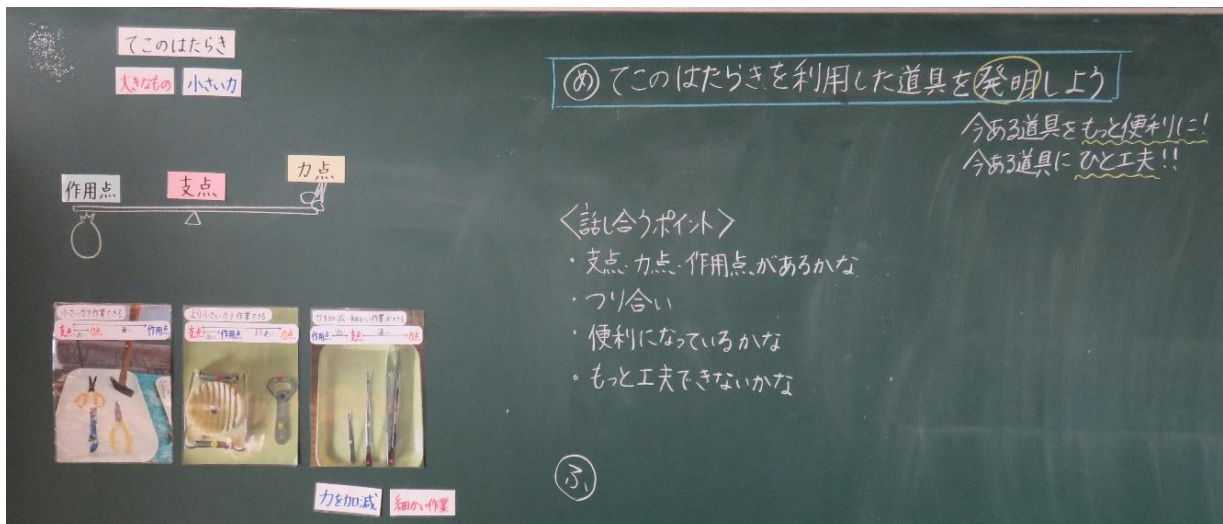 てこのはたらき
大きなもの 小さい力
作用点 支点 力点
小さい力で作業できる
支点 力点 作用点
より小さい力で作業できる
支点 作用点 力点
力を加減 細かい作業ができる
作用点 支点 力点
力を加減 細かい作業
め てこのはたらきを利用した道具を発明しよう
今ある道具をもっと便利に!
今ある道具にひと工夫!!
〈話し合うポイント〉
・支点・力点・作用点があるかな
・つり合い
・便利になっているかな
・もっと工夫できないかな
ふ